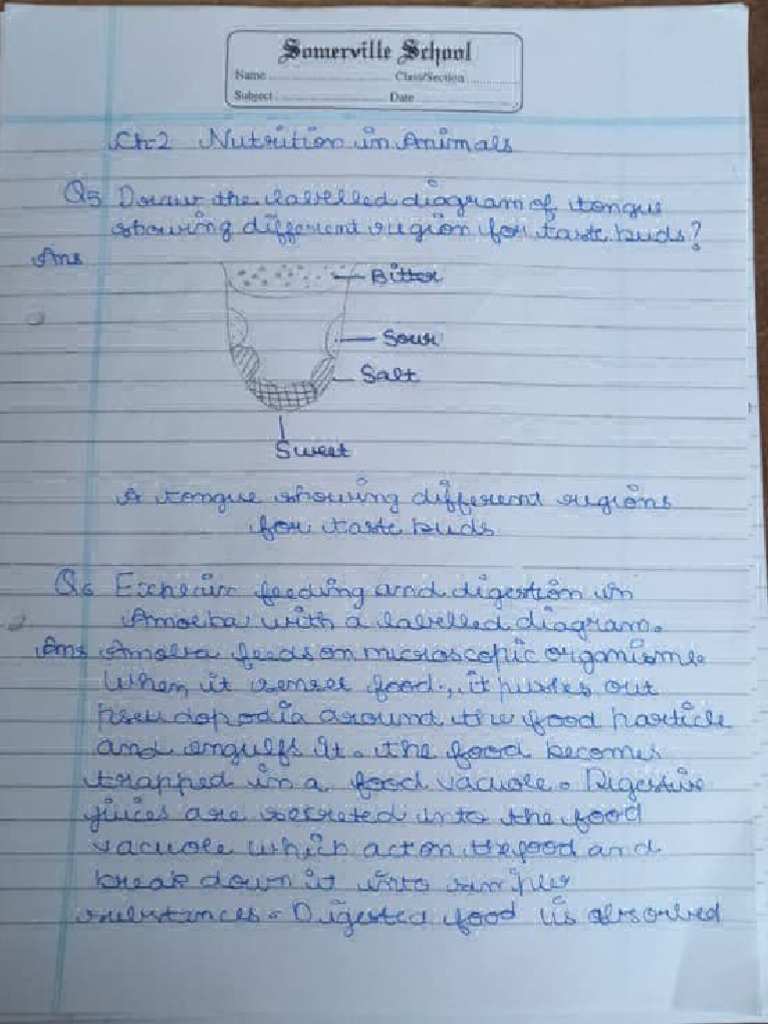 Somerville School
Name ............ Class/Section ............
Subject ............ Date ............
Ch-2 Nutrition in Animals
Q5 Draw the labelled diagram of tongue
showing different region for taste buds?
Ans
Bitter
Sour
Salt
Sweet
A tongue showing different regions
for taste buds
Q6 Explain feeding and digestion in
Amoeba with a labelled diagram.
Ans Amoeba feeds on microscopic organisms.
When it senses food, it pushes out
pseudopodia around the food particle
and engulfs it. the food becomes
trapped in a food vacuole. Digestive
juices are secreted into the food
vacuole which act on the food and
break down it into simpler
substances. Digested food is absorbed